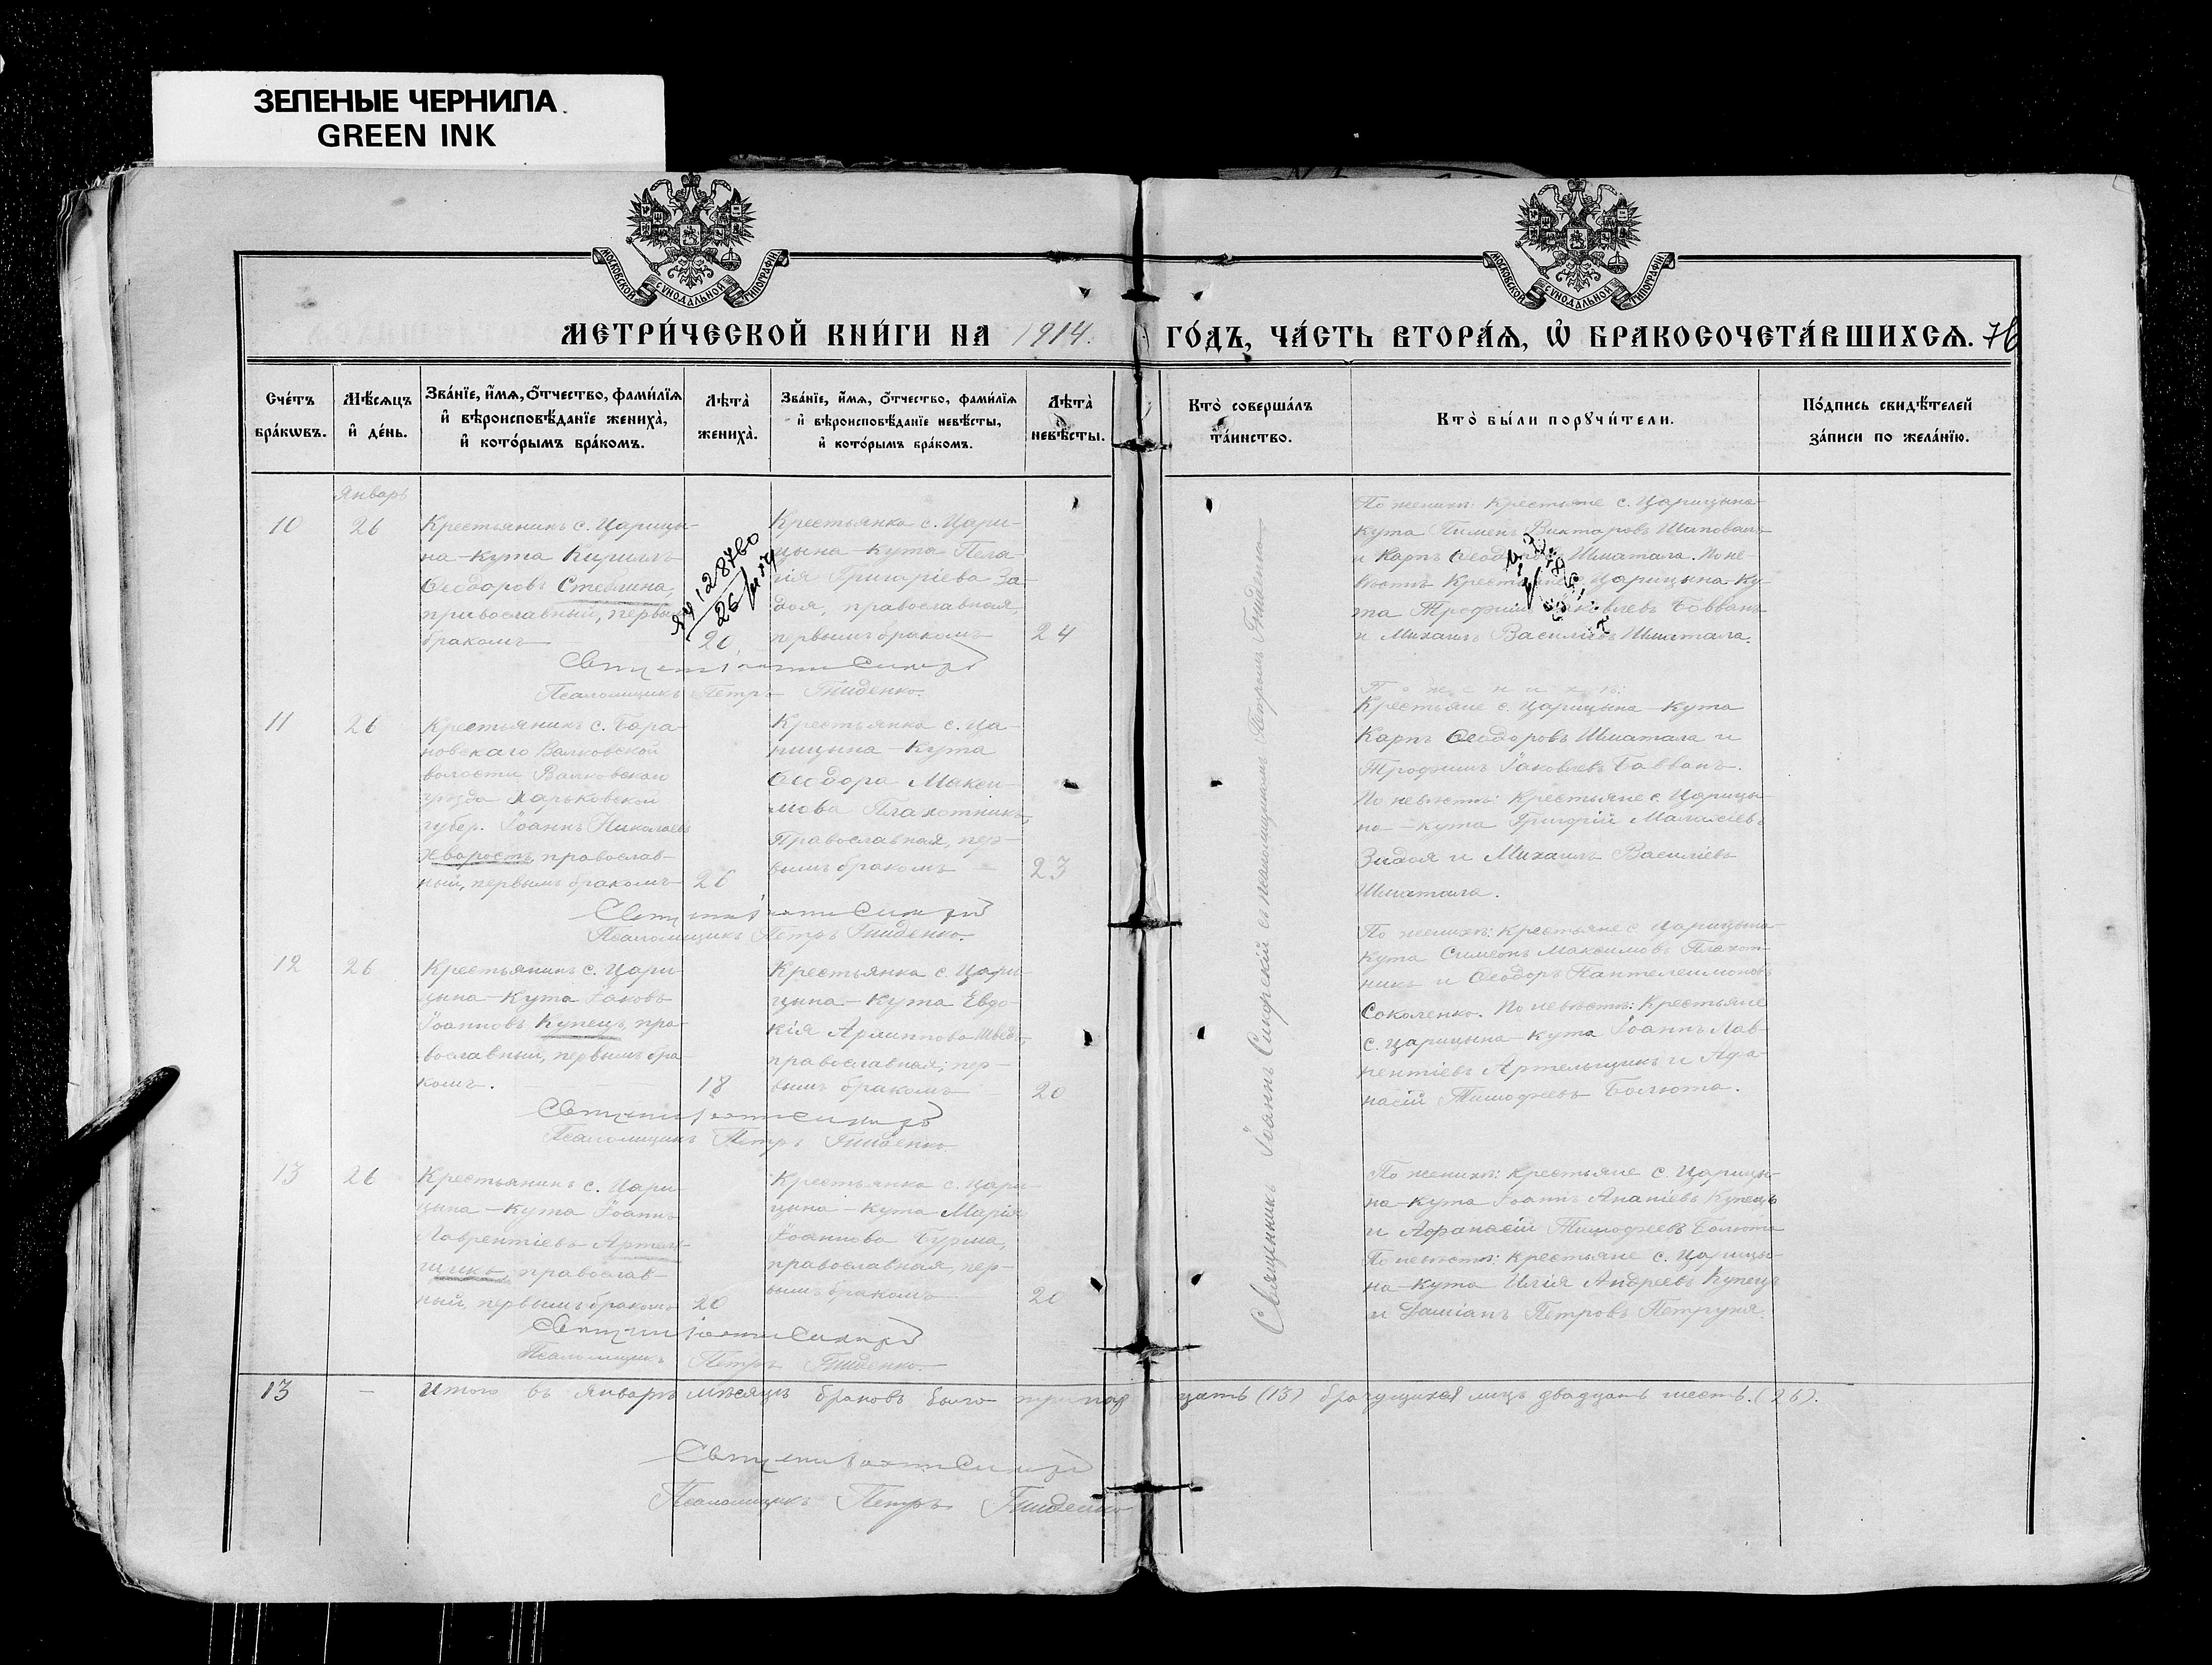 ЗЕЛЕНЫЕ ЧЕРНИЛА
GREEN INK
МОСКОВСКОЙ СѴНОДАЛЬНОЙ ТИПОГРАФІИ
МОСКОВСКОЙ СѴНОДАЛЬНОЙ ТИПОГРАФІИ
МЕТРИ́ЧЕСКОЙ КНИ́ГИ НА 1914.
ГО́ДЪ, ЧА́СТЬ ВТОРА́Я, Ѡ҆ БРАКОСОЧЕТА́ВШИХСЯ. 76
Сче́тъ бра́кѡвъ.
Мѣ́сяцъ и҆ де́нь.
Зва́нїе, и҆́мя, ѻ҆́тчество, фами́лїя и҆ вѣроисповѣ́данїе жениха̀, и҆ кото́рымъ бра́комъ.
Лѣта̀ жениха̀.
Зва́нїе, и҆́мя, ѻ҆́тчество, фами́лїя и҆ вѣроисповѣ́данїе невѣ́сты, и҆ кото́рымъ бра́комъ.
Лѣта̀ невѣ́сты.
Кто̀ соверша́лъ та́инство.
Кто̀ бы́ли порꙋчи́тели.
По́дпись свидѣ́телей за́писи по жела́нїю.
Январь
10
26
Крестьянинъ с. Царицы-
на-Кута Кириллъ
Ѳеодоровъ Стеблина,
православный, первымъ
бракомъ
128760
26
20
Крестьянка с. Цари-
цына-Кута Пела-
гія Григоріева За-
доя, православная,
первымъ бракомъ
24
По женихѣ: Крестьяне с. Царицына-
Кута Пименъ Викторовъ Шаповалъ
и Карпъ Ѳеодоровъ Шматала. По не-
вѣстѣ: Крестьяне с. Царицына-Ку-
та Трофимъ Іаковлевъ Бовванъ
и Михаилъ Василіевъ Шматала.
Псаломщикъ Петръ Гниденко.
11
26
Крестьянинъ с. Бара-
новскаго Валковской
волости Валковскаго
уѣзда Харьковской
губер. Іоаннъ Николаевъ
Хворостъ, православ-
ный, первымъ бракомъ
26
Крестьянка с. Ца-
рицына-Кута
Ѳеодора Макси-
мова Плахотникъ
Православная, пер-
вымъ бракомъ
23
По женихѣ:
Крестьяне с. Царицына-Кута
Карпъ Ѳеодоровъ Шматала и
Трофимъ Іаковлевъ Бовванъ.
По невѣстѣ: Крестьяне с. Царицы-
на-Кута Григорій
Задоя и Михаилъ Василіевъ
Шматала.
Псаломщикъ Петръ Гниденко.
12
26
Крестьянинъ с. Цари-
цына-Кута Іаковъ
Іоанновъ Купецъ, пра-
вославный, первымъ бра-
комъ.
18
Крестьянка с. Цари-
цына-Кута Евдо-
кія
православная, пер-
вымъ бракомъ
20
По женихѣ: Крестьяне с. Царицына-
Кута Симеонъ Максимовъ Плахот-
никъ и Ѳеодоръ Пантелеимоновъ
Соколенко. По невѣстѣ: Крестьяне
с. Царицына-Кута Іоаннъ Лав-
рентіевъ Артельщикъ и Афа-
насій Тимофеевъ Болюта.
Псаломщикъ Петръ Гниденко
13
26
Крестьянинъ с. Цари-
цына-Кута Іоаннъ
Лаврентіевъ Артель-
щикъ, православ-
ный, первымъ бракомъ
20
Крестьянка с. Цари-
цына-Кута Марія
Іоаннова Бурма,
православная, пер-
вымъ бракомъ
20
По женихѣ: Крестьяне с. Царицы-
на-Кута Іоаннъ Ананіевъ Купецъ
и Афанасій Тимофеевъ Болюта
По невѣстѣ: Крестьяне с. Царицы-
на-Кута Илія Андреевъ Купецъ
и Даміанъ Петровъ Петруня.
Псаломщикъ Петръ Гниденко.
Священникъ Іоаннъ съ псаломщикомъ Петромъ Гниденко
13 — Итого въ январѣ мѣсяцѣ браковъ было тринад цать (13) брачущихся лицъ двадцать шесть. (26).
Псаломщикъ Петръ Гниденко